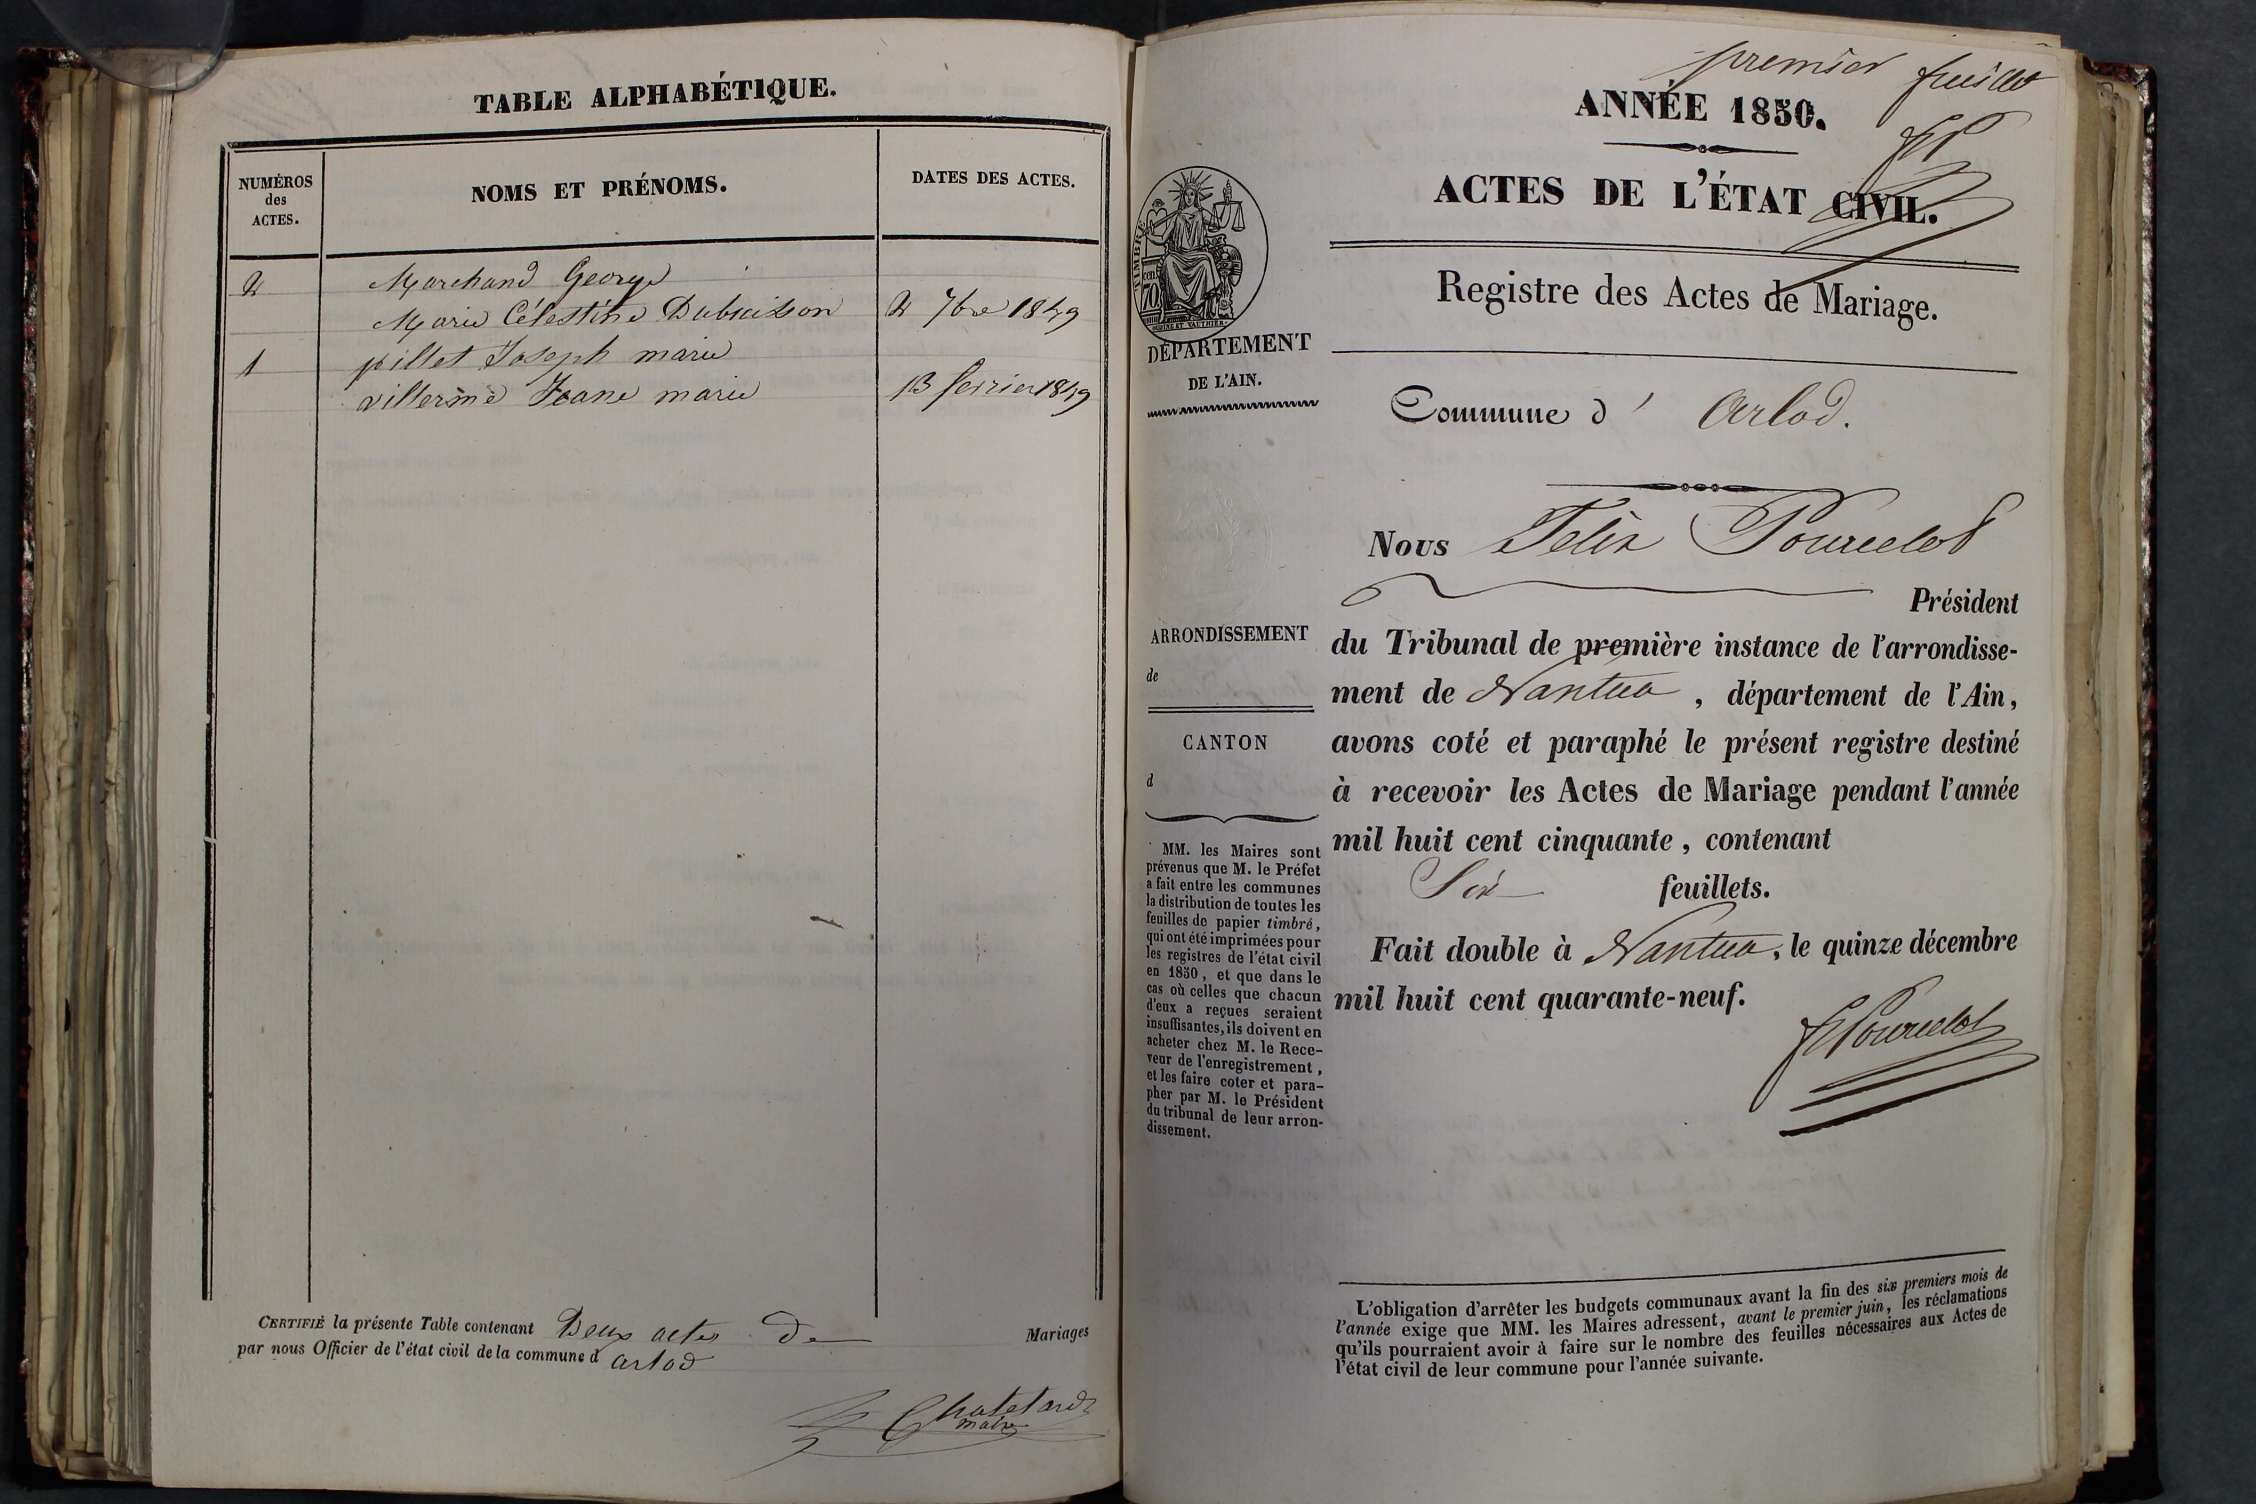 TABLE ALPHABÉTIQUE.
NUMÉROS
des
ACTES.
NOMS ET PRÉNOMS.
DATES DES ACTES.
2 Marchand George
Marie Célestine Dubuisson 2 7bre 1849
1 pillet Joseph marie
villermé Jeane marie 13 fevrier 1849
CERTIFIÉ la présente Table contenant Deux actes de Mariages
par nous Officier de l'état civil de la commune d arlod
Chatelard
maire
premier feuillet
FP
ANNÉE 1850.
ACTES DE L'ÉTAT CIVIL.
Registre des Actes de Mariage.
TIMBRE
70
cen.
DÉPARTEMENT
DE L'AIN.
Commune d' Arlod.
Nous Félix Pourcelot
Président
ARRONDISSEMENT
de
CANTON
d
du Tribunal de première instance de l'arrondisse-
ment de Nantua, département de l'Ain,
avons coté et paraphé le présent registre destiné
à recevoir les Actes de Mariage pendant l'année
mil huit cent cinquante, contenant
Six feuillets.
Fait double à Nantua, le quinze décembre
mil huit cent quarante-neuf.
F Pourcelot
MM. les Maires sont
prévenus que M. le Préfet
a fait entre les communes
la distribution de toutes les
feuilles de papier timbré,
qui ont été imprimées pour
les registres de l'état civil
en 1850, et que dans le
cas où celles que chacun
d'eux a reçues seraient
insuffisantes, ils doivent en
acheter chez M. le Rece-
veur de l'enregistrement,
et les faire coter et para-
pher par M. le Président
du tribunal de leur arron-
dissement.
L'obligation d'arrêter les budgets communaux avant la fin des six premiers mois de
l'année exige que MM. les Maires adressent, avant le premier juin, les réclamations
qu'ils pourraient avoir à faire sur le nombre des feuilles nécessaires aux Actes de
l'état civil de leur commune pour l'année suivante.